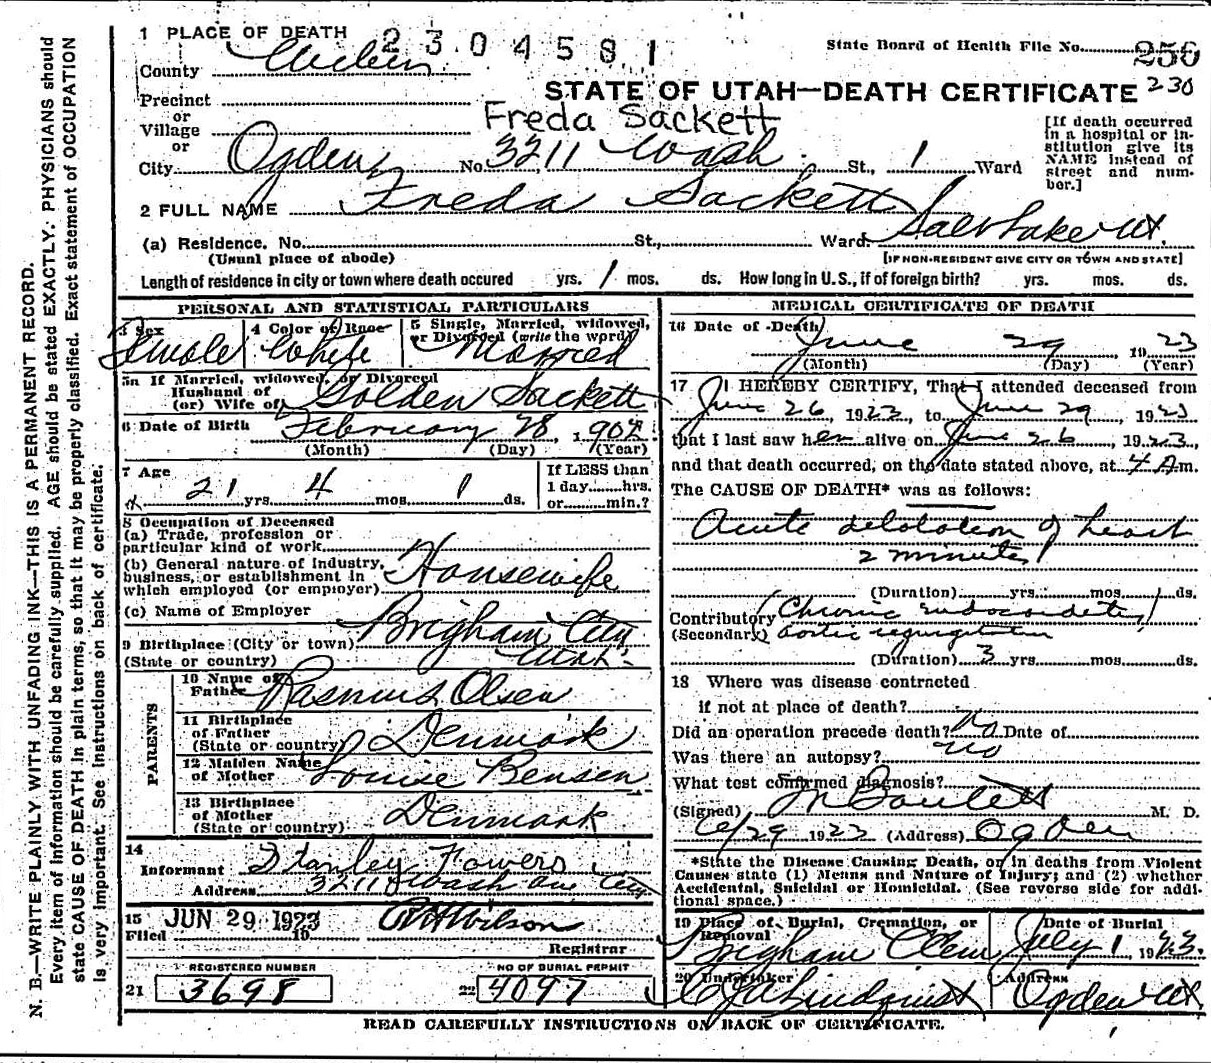 1 PLACE OF DEATH 2304581
State Board of Health File No. 256
County
230
Precinct
STATE OF UTAH—DEATH CERTIFICATE
or
Village
Freda Sackett
or
City Ogden No. 3211 Wash. St., 1 Ward
[If death occurred
in a hospital or in-
stitution give its
NAME instead of
street and num-
ber.]
2 FULL NAME Freda Sackett
(a) Residence. No. St., Ward. Salt Lake Ut.
(Usual place of abode) [IF NON-RESIDENT GIVE CITY OR TOWN AND STATE]
Length of residence in city or town where death occured yrs. 1 mos. ds. How long in U.S., if of foreign birth? yrs. mos. ds.
PERSONAL AND STATISTICAL PARTICULARS
3 Sex 4 Color or Race 5 Single, Married, widowed,
or Divorced (write the word)
Female White Married
5a If Married, widowed, or Divorced
Husband of
(or) Wife of Golden Sackett
6 Date of Birth February 28, 1902
(Month) (Day) (Year)
7 Age
21 yrs. 4 mos. 1 ds.
If LESS than
1 day......hrs.
or.........min.?
8 Occupation of Deceased
(a) Trade, profession or
particular kind of work
(b) General nature of Industry,
business, or establishment in
which employed (or employer) Housewife
(c) Name of Employer
9 Birthplace (City or town) Brigham City
(State or country) Utah
PARENTS
10 Name of
Father Rasmus Olsen
11 Birthplace
of Father
(State or country) Denmark
12 Maiden Name
of Mother Louise Bensen
13 Birthplace
of Mother
(State or country) Denmark
14
Informant Stanley Fowers
Address 3211 Wash Ave City
15 Filed JUN 29 1923 19 Wilson
Registrar
REGISTERED NUMBER NO OF BURIAL PERMIT
21 3698 22 4097
MEDICAL CERTIFICATE OF DEATH
16 Date of Death
June 29, 1923
(Month) (Day) (Year)
17 I HEREBY CERTIFY, That I attended deceased from
June 26, 1923, to June 29, 1923
that I last saw her alive on June 26, 1923,
and that death occurred, on the date stated above, at 4 A.m.
The CAUSE OF DEATH* was as follows:
Acute dilatation of heart
2 minutes
(Duration) yrs. mos. ds.
Contributory (Chronic endocarditis)
(Secondary) aortic regurgitation
(Duration) 3 yrs. mos. ds.
18 Where was disease contracted
if not at place of death?
Did an operation precede death? No Date of
Was there an autopsy? no
What test confirmed diagnosis?
(Signed) M. D.
6/29 1923 (Address) Ogden
*State the Disease Causing Death, or in deaths from Violent
Causes state (1) Means and Nature of Injury; and (2) whether
Accidental, Suicidal or Homicidal. (See reverse side for addi-
tional space.)
19 Place of Burial, Cremation, or
Removal
Date of Burial
Brigham Cem July 1, 1923.
20 Undertaker Address
Lindquist Ogden Ut.
READ CAREFULLY INSTRUCTIONS ON BACK OF CERTIFICATE.
N. B.—WRITE PLAINLY WITH UNFADING INK—THIS IS A PERMANENT RECORD.
Every item of information should be carefully supplied. AGE should be stated EXACTLY. PHYSICIANS should
state CAUSE OF DEATH in plain terms, so that it may be properly classified. Exact statement of OCCUPATION
is very important. See instructions on back of certificate.